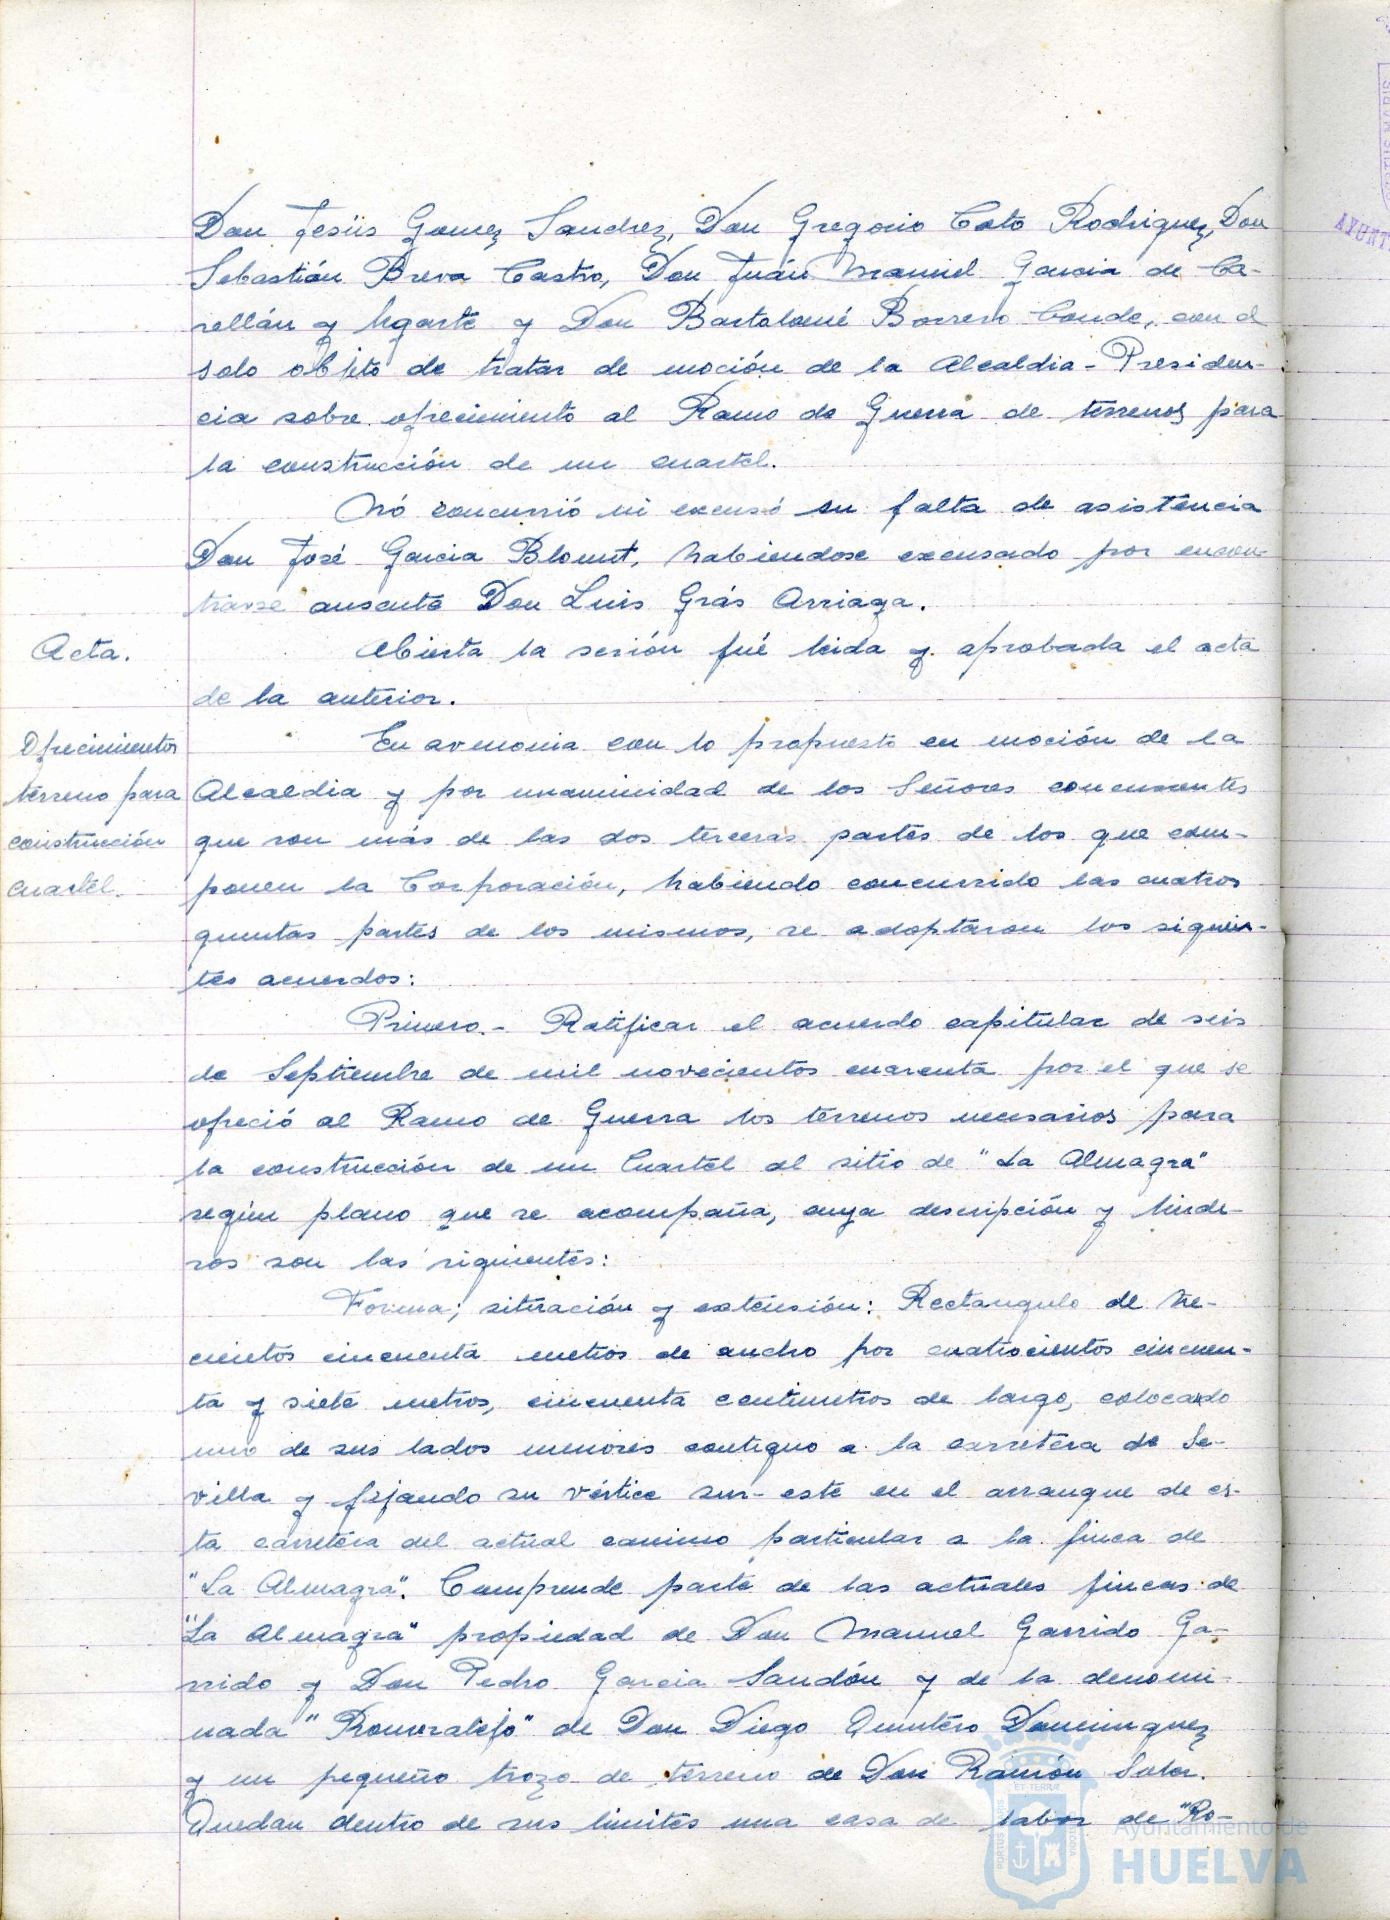 Don Jesús Gomez Sandrez, Don Gregorio Coto Rodriguez, Don
Sebastián Breva Castro, Don Juán Manuel Garcia de Ca-
rellán y Ugarte y Don Bartolomé Borrero Conde, con el
solo objeto de tratar de moción de la Alcaldia-Presiden-
cia sobre ofrecimiento al Ramo de Guerra de terrenos para
la construcción de un cuartel.
Nó concurrió ni excusó su falta de asistencia
Don José Garcia Blount, habiendose excusado por encon-
trarse ausente Don Luis Grás Arriaga.
Acta.
Abierta la sesión fué leida y aprobada el acta
de la anterior.
Ofrecimientos
terreno para
construcción
cuartel.
En avenonia con lo propuesto en moción de la
Alcaldia y por unanimidad de los Señores concurrentes
que son más de las dos terceras partes de los que com-
ponen la Corporación, habiendo concurrido las cuatros
quintas partes de los mismos, se adoptaron los siguien-
tes acuerdos:
Primero.- Ratificar el acuerdo capitular de seis
de Septiembre de mil novecientos cuarenta por el que se
ofreció al Ramo de Guerra los terrenos necesarios para
la construcción de un Cuartel al sitio de "La Almagra"
según plano que se acompaña, cuya descripción y linde-
ros son las siguientes:
Forma; situación y extensión: Rectangulo de tre-
cientos cincuenta metros de ancho por cuatrocientos cincuen-
ta y siete metros, cincuenta centimetros de largo, colocado
uno de sus lados menores contiguo a la carretera de Se-
villa y fijando su vértice sur-este en el arranque de es-
ta carretera del actual camino particular a la finca de
"La Almagra". Comprende parte de las actuales fincas de
"La Almagra" propiedad de Don Manuel Garrido Ga-
rrido y Don Pedro Garcia Sandón y de la denomi-
nada "Romeralejo" de Don Diego Quintero Dominguez
y un pequeño trozo de terreno de Don Ramón Soler.
Quedan dentro de sus limites una casa de labor de "Ro-
Ayuntamiento de
HUELVA